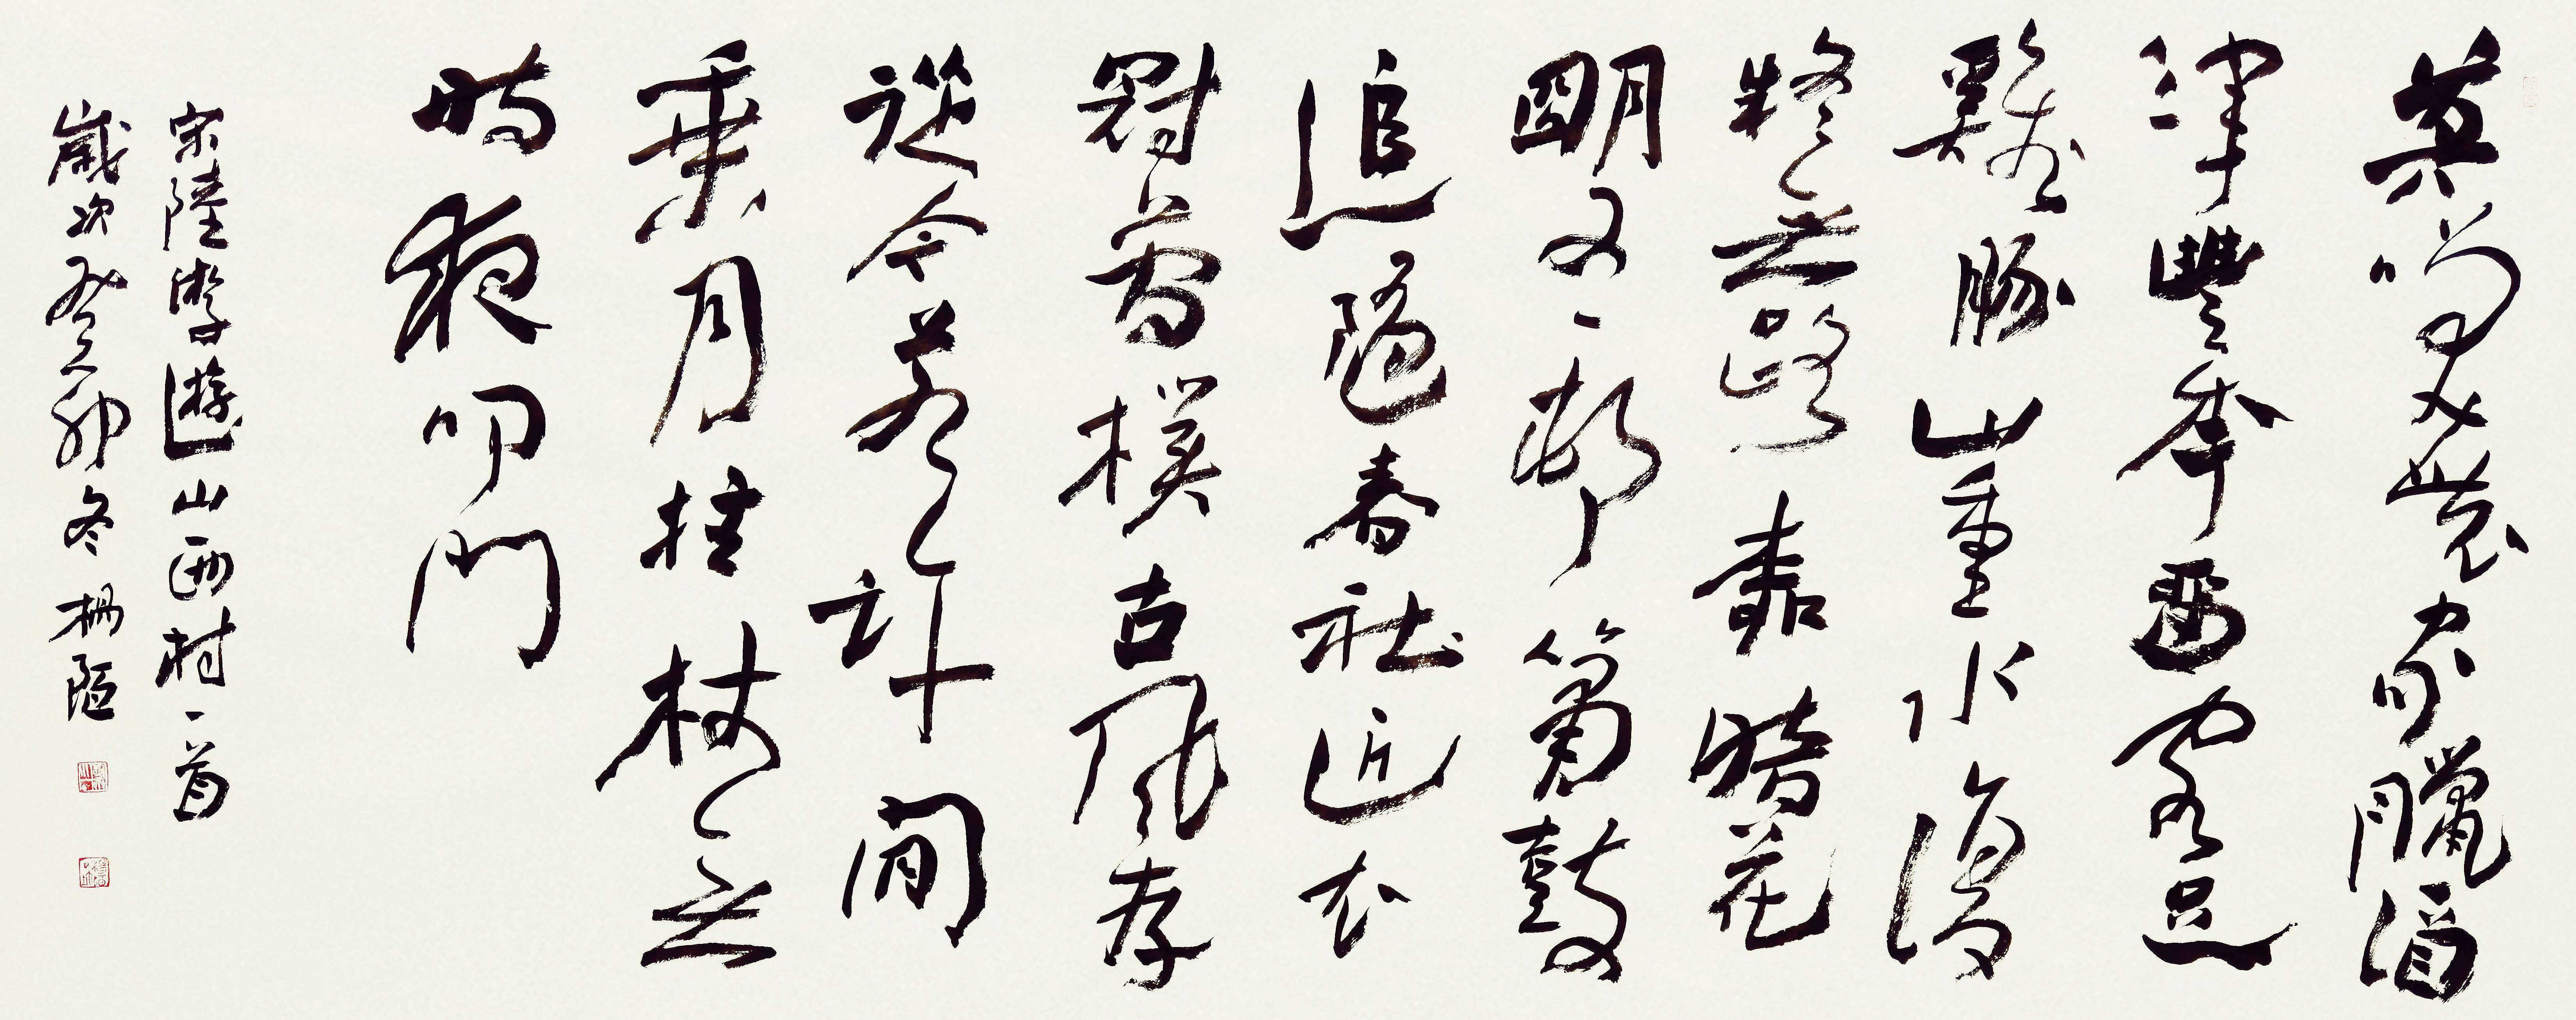 莫咲農家臘酒
渾豐秊留客足
雞豚山重水復
疑無路桺暗花
朙又一邨簫鼓
追隨春社近衣
冠簡樸古風存
從今若許閒
乘月拄杖無
時夜叩門
宋陸游遊山西村一首
歲次癸卯冬